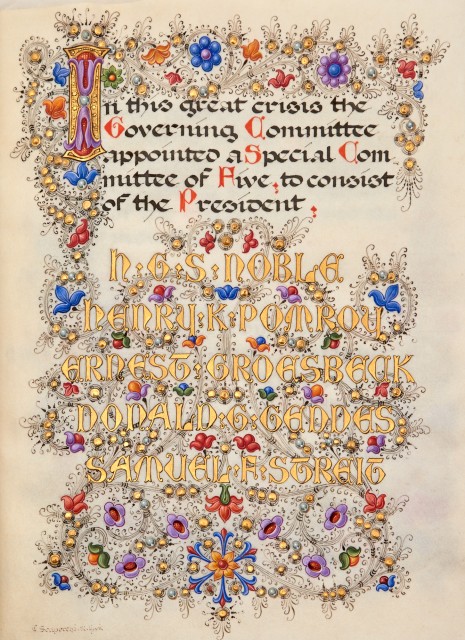 In this great crisis the
Governing Committee
appointed a Special Com
mittee of Five, to consist
of the President :
H·G·S·NOBLE
HENRY·K·POMROY
ERNEST·GROESBECK
DONALD·G·GEDDES
SAMUEL·F·STREIT